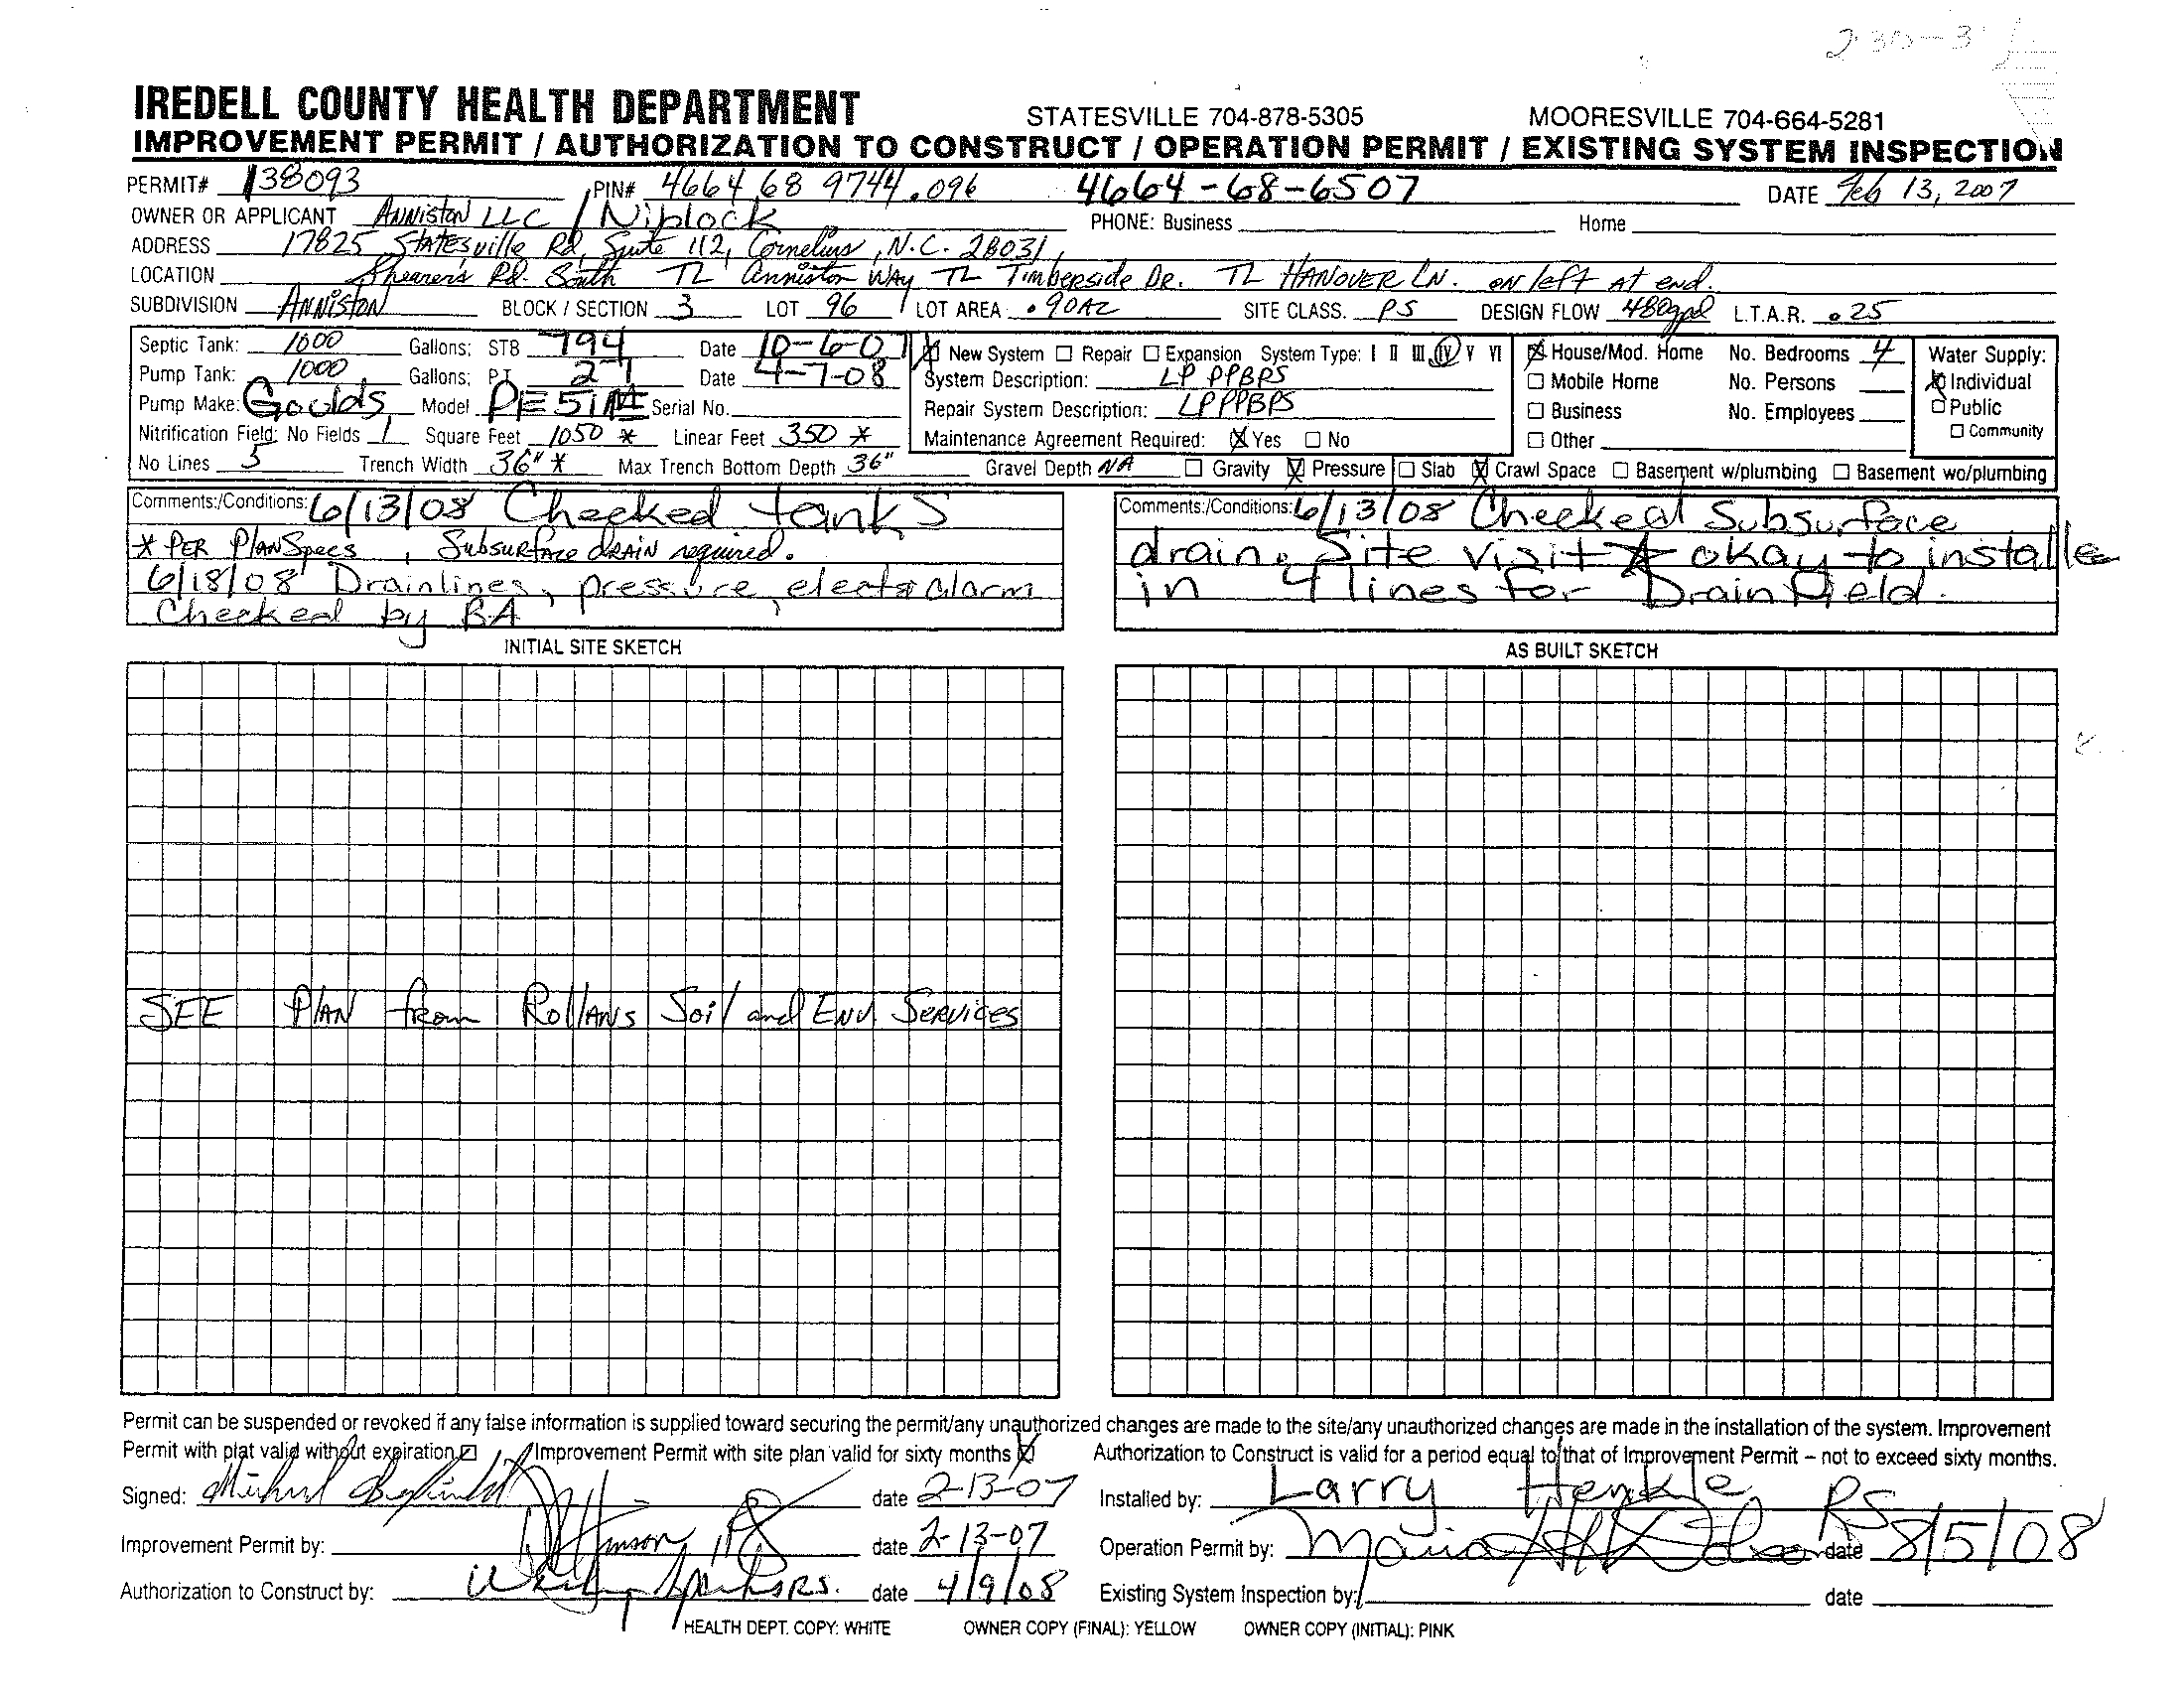 IREDELL COUNTY HEALTH DEPARTMENT STATESVILLE 704-878-5305 MOORESVILLE 704-664-5281
IMPROVEMENT PERMIT / AUTHORIZATION TO CONSTRUCT / OPERATION PERMIT / EXISTING SYSTEM INSPECTION
PERMIT# 138093 PIN# 4664 68 9744.096 4664-68-6507 DATE Feb 13, 2007
OWNER OR APPLICANT Anniston LLC / Niblock PHONE: Business Home
ADDRESS 17825 Statesville Rd, Suite 112, Cornelius, N.C. 28031
LOCATION Shearers Rd. South TL Anniston Way TL Timberside Dr. TL HANOVER LN. on left at end.
SUBDIVISION ANNISTON BLOCK / SECTION 3 LOT 96 LOT AREA .90AC SITE CLASS. PS DESIGN FLOW 480gpd L.T.A.R. .25
Septic Tank: 1000 Gallons; STB 794 Date 10-6-07 New System Repair Expansion System Type: I II III IV V VI House/Mod. Home No. Bedrooms 4 Water Supply:
Pump Tank: 1000 Gallons; PT 27 Date 4-7-08 System Description: LP PPBPS Mobile Home No. Persons Individual
Pump Make: Goulds Model PE51M Serial No. Repair System Description: LPPPBPS Business No. Employees Public
Nitrification Field: No Fields 1 Square Feet 1050 * Linear Feet 350 * Maintenance Agreement Required: Yes No Other Community
No Lines 5 Trench Width 36" * Max Trench Bottom Depth 36" Gravel Depth NA Gravity Pressure Slab Crawl Space Basement w/plumbing Basement wo/plumbing
Comments:/Conditions: 6/13/08 Checked tanks
* PER Plan Specs, Subsurface drain required.
6/18/08 Drainlines, pressure, elect & alarm
Checked by BA
Comments:/Conditions: 6/13/08 Checked Subsurface
drain. Site visit okay to install
in 4 lines for Drainfield.
INITIAL SITE SKETCH AS BUILT SKETCH
SEE PLAN from Rollans Soil and Env. Services
Permit can be suspended or revoked if any false information is supplied toward securing the permit/any unauthorized changes are made to the site/any unauthorized changes are made in the installation of the system. Improvement
Permit with plat valid without expiration Improvement Permit with site plan valid for sixty months Authorization to Construct is valid for a period equal to that of Improvement Permit – not to exceed sixty months.
Signed: date 2-13-07 Installed by: Larry Henkle
Improvement Permit by: date 2-13-07 Operation Permit by: Maria RS date 8/5/08
Authorization to Construct by: RS. date 4/9/08 Existing System Inspection by: date
HEALTH DEPT. COPY: WHITE OWNER COPY (FINAL): YELLOW OWNER COPY (INITIAL): PINK